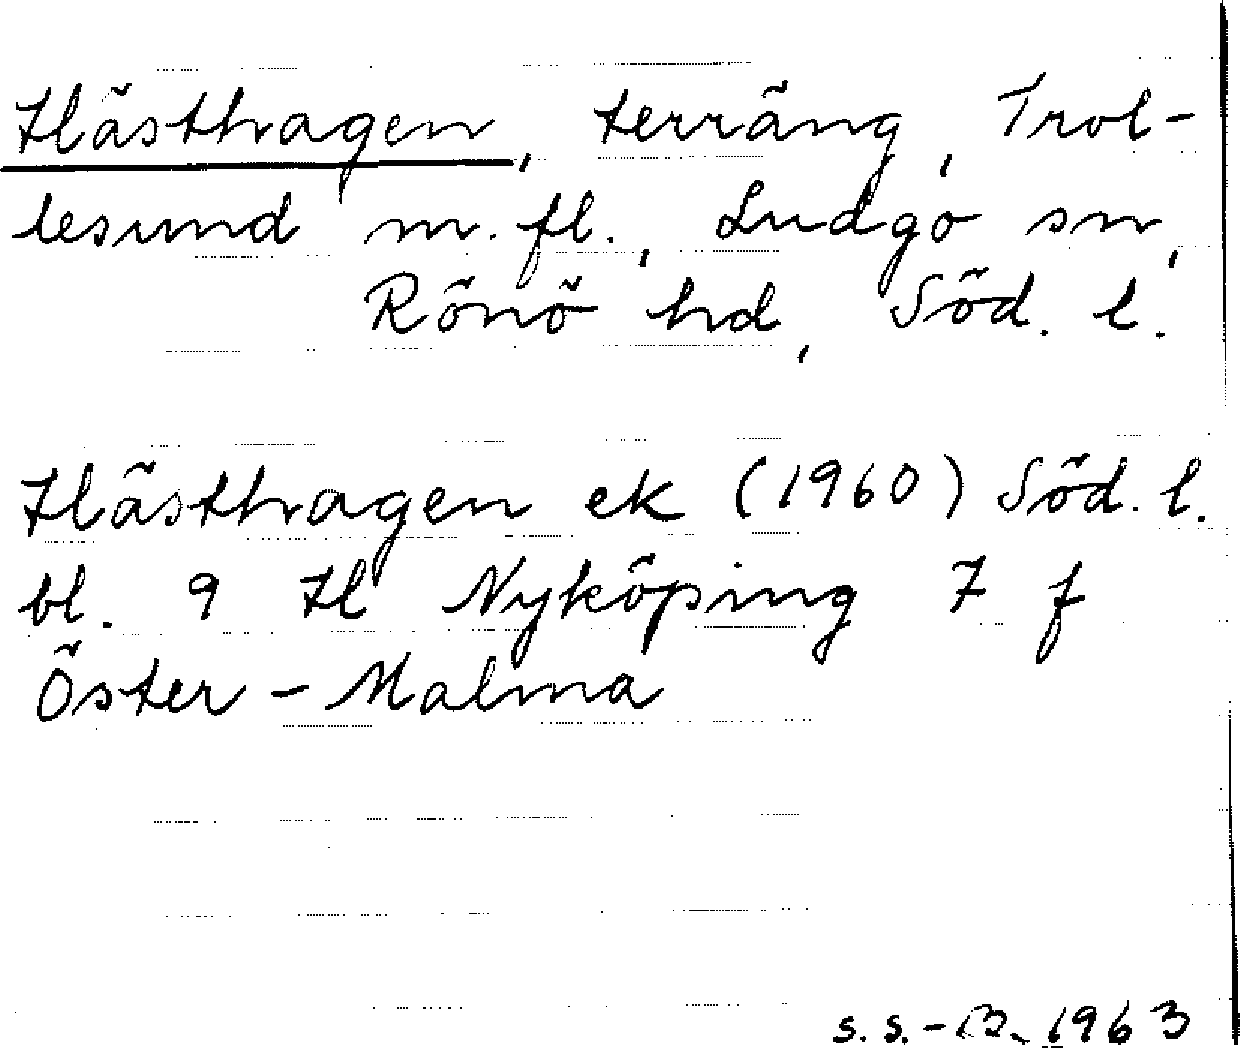 Hästhagen, terräng, Trol-
lesund m. fl., Ludgo sn,
Rönö hd, Söd. l.
Hästhagen ek (1960) Söd. l.
bl. 9 H Nyköping 7 f
Öster-Malma
s.s.-B. 1963